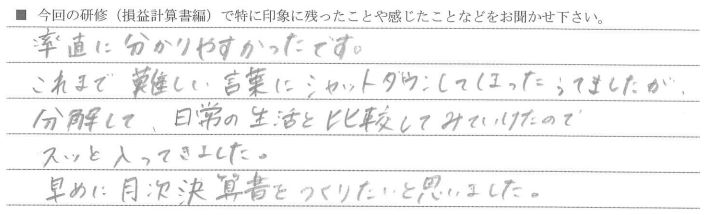 ■ 今回の研修（損益計算書編）で特に印象に残ったことや感じたことなどをお聞かせ下さい。
率直に分かりやすかったです。
これまで難しい言葉にシャットダウンしてしまったりてましたが、
分解して、日常の生活と比較してみていけたので
スッと入ってきました。
早めに月次決算書をつくりたいと思いました。